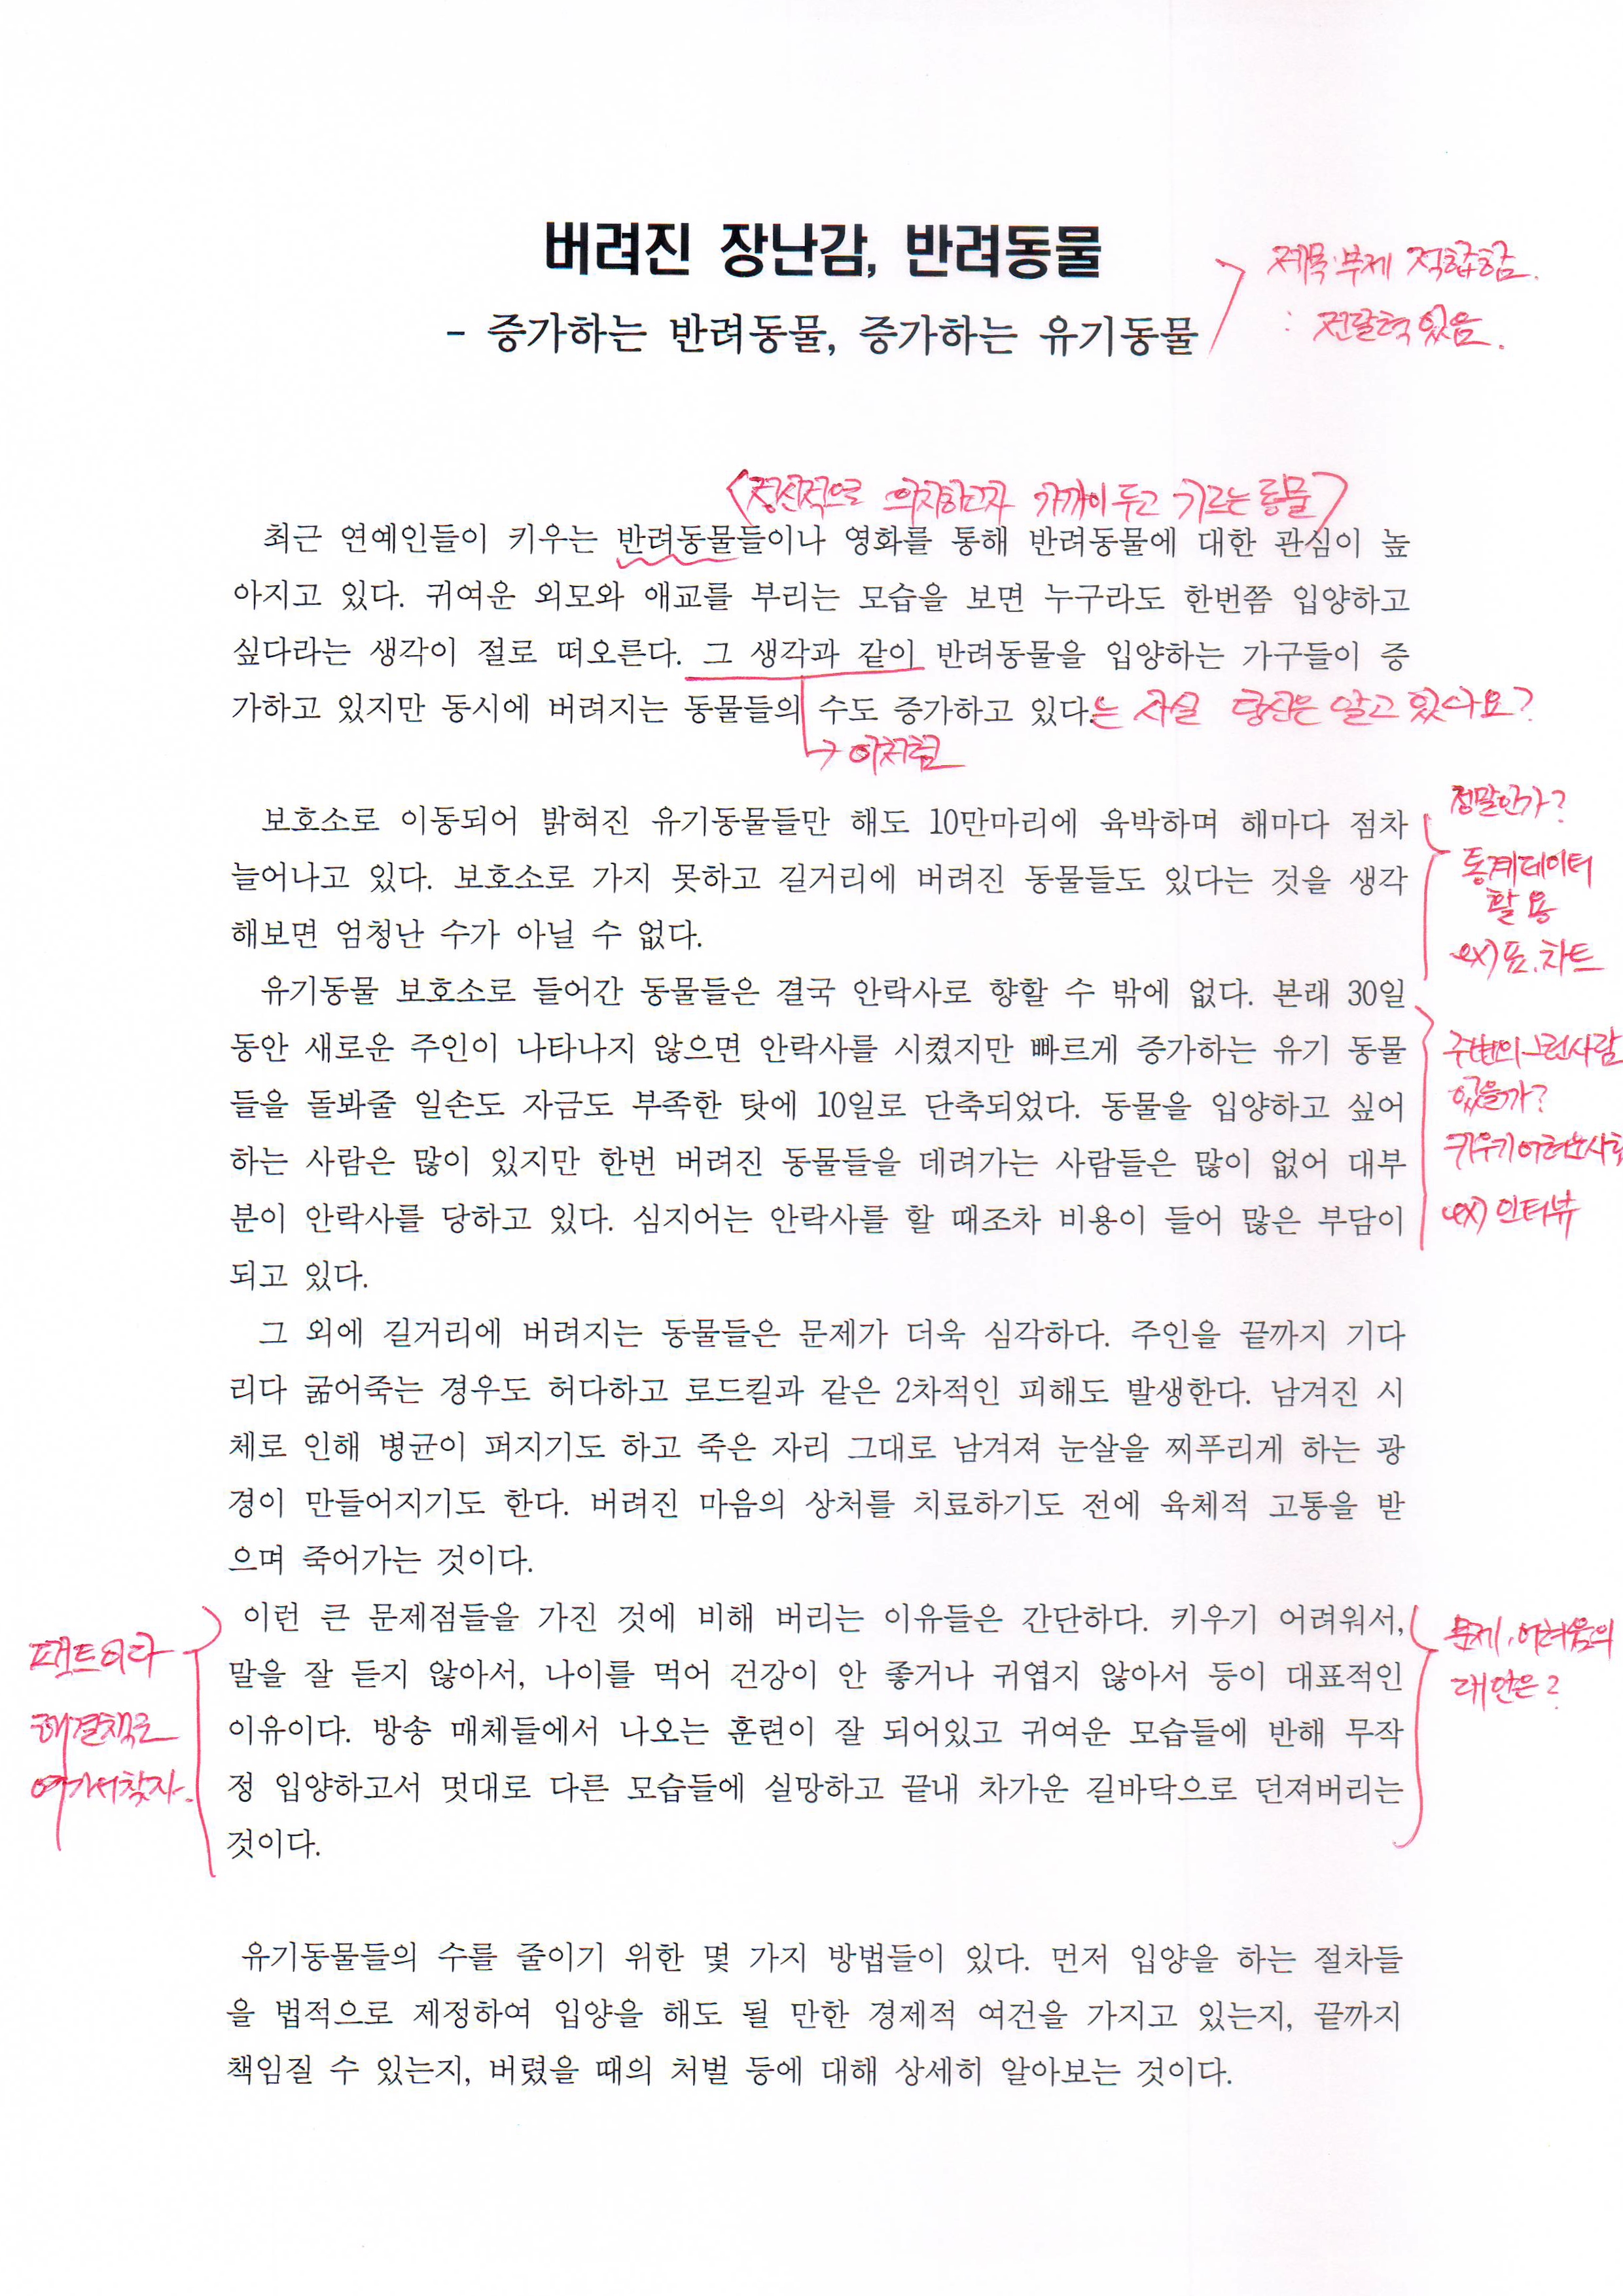 버려진 장난감, 반려동물
제목·부제 적합함.
- 증가하는 반려동물, 증가하는 유기동물
: 전달력 있음.
<정신적으로 의지하고자 가까이 두고 기르는 동물>
최근 연예인들이 키우는 반려동물들이나 영화를 통해 반려동물에 대한 관심이 높
아지고 있다. 귀여운 외모와 애교를 부리는 모습을 보면 누구라도 한번쯤 입양하고
싶다라는 생각이 절로 떠오른다. 그 생각과 같이 반려동물을 입양하는 가구들이 증
가하고 있지만 동시에 버려지는 동물들의 수도 증가하고 있다.는 사실 당신은 알고 있나요?
→ 이처럼
정말인가?
보호소로 이동되어 밝혀진 유기동물들만 해도 10만마리에 육박하며 해마다 점차
통계데이터
늘어나고 있다. 보호소로 가지 못하고 길거리에 버려진 동물들도 있다는 것을 생각
활용
해보면 엄청난 수가 아닐 수 없다.
ex) 표, 차트
유기동물 보호소로 들어간 동물들은 결국 안락사로 향할 수 밖에 없다. 본래 30일
동안 새로운 주인이 나타나지 않으면 안락사를 시켰지만 빠르게 증가하는 유기 동물
주변의 그런사람
들을 돌봐줄 일손도 자금도 부족한 탓에 10일로 단축되었다. 동물을 입양하고 싶어
있을까?
하는 사람은 많이 있지만 한번 버려진 동물들을 데려가는 사람들은 많이 없어 대부
키우기 어려운
분이 안락사를 당하고 있다. 심지어는 안락사를 할 때조차 비용이 들어 많은 부담이
ex) 인터뷰
되고 있다.
그 외에 길거리에 버려지는 동물들은 문제가 더욱 심각하다. 주인을 끝까지 기다
리다 굶어죽는 경우도 허다하고 로드킬과 같은 2차적인 피해도 발생한다. 남겨진 시
체로 인해 병균이 퍼지기도 하고 죽은 자리 그대로 남겨져 눈살을 찌푸리게 하는 광
경이 만들어지기도 한다. 버려진 마음의 상처를 치료하기도 전에 육체적 고통을 받
으며 죽어가는 것이다.
이런 큰 문제점들을 가진 것에 비해 버리는 이유들은 간단하다. 키우기 어려워서,
문제, 어려움의
팩트이다
말을 잘 듣지 않아서, 나이를 먹어 건강이 안 좋거나 귀엽지 않아서 등이 대표적인
대안은?
해결책도
이유이다. 방송 매체들에서 나오는 훈련이 잘 되어있고 귀여운 모습들에 반해 무작
여기서 찾자.
정 입양하고서 멋대로 다른 모습들에 실망하고 끝내 차가운 길바닥으로 던져버리는
것이다.
유기동물들의 수를 줄이기 위한 몇 가지 방법들이 있다. 먼저 입양을 하는 절차들
을 법적으로 제정하여 입양을 해도 될 만한 경제적 여건을 가지고 있는지, 끝까지
책임질 수 있는지, 버렸을 때의 처벌 등에 대해 상세히 알아보는 것이다.